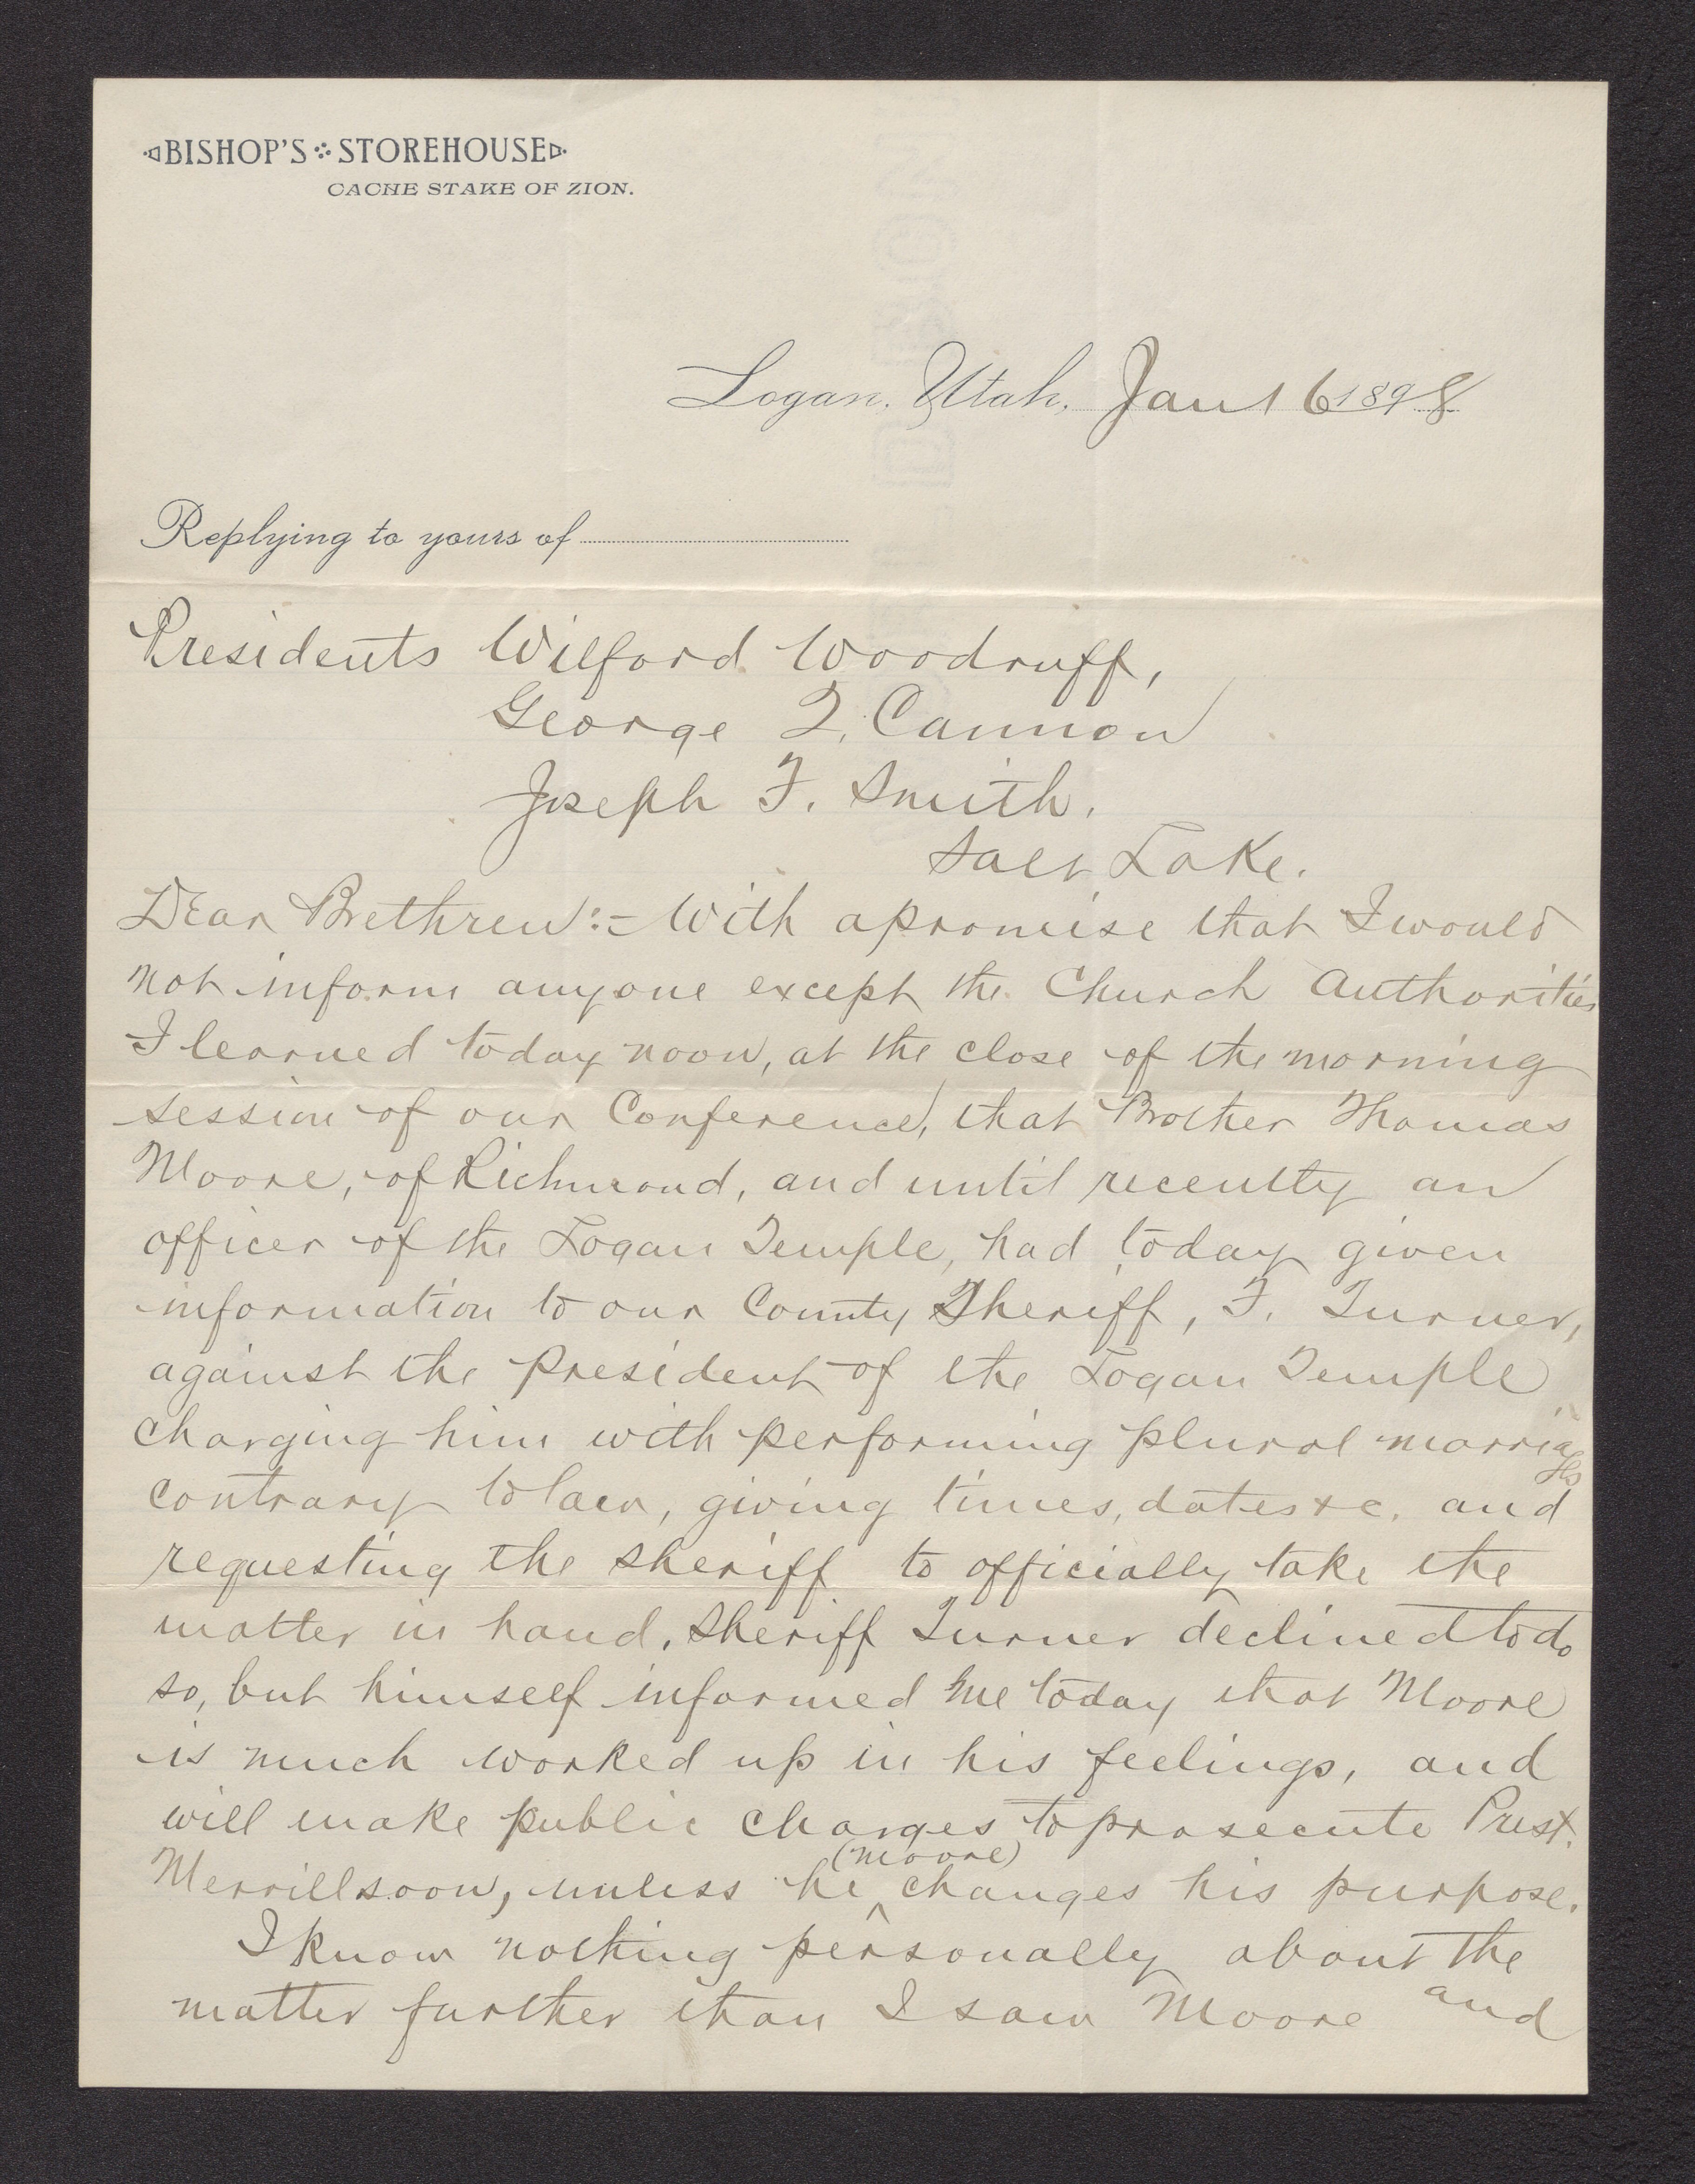 BISHOP'S STOREHOUSE
CACHE STAKE OF ZION.
Logan, Utah, Jan 16 1898
Replying to yours of
Presidents Wilford Woodruff,
George Q. Cannon
Joseph F. Smith.
Salt Lake.
Dear Brethren:- With a promise that I would
not inform anyone except the Church Authorities
I learned today noon, at the close of the morning
session of our Conference, that Brother Thomas
Moore, of Richmond, and until recently an
officer of the Logan Temple, had today given
information to our County Sheriff, F. Turner,
against the President of the Logan Temple
charging him with performing plural marriages
contrary to law, giving times, dates &c. and
requesting the sheriff to officially take the
matter in hand. Sheriff Turner declined to do
so, but himself informed me today that Moore
is much worked up in his feelings, and
will make public charges to prosecute Prest.
Merrill soon, unless he (Moore) changes his purpose.
I know nothing personally about the
matter further than I saw Moore and